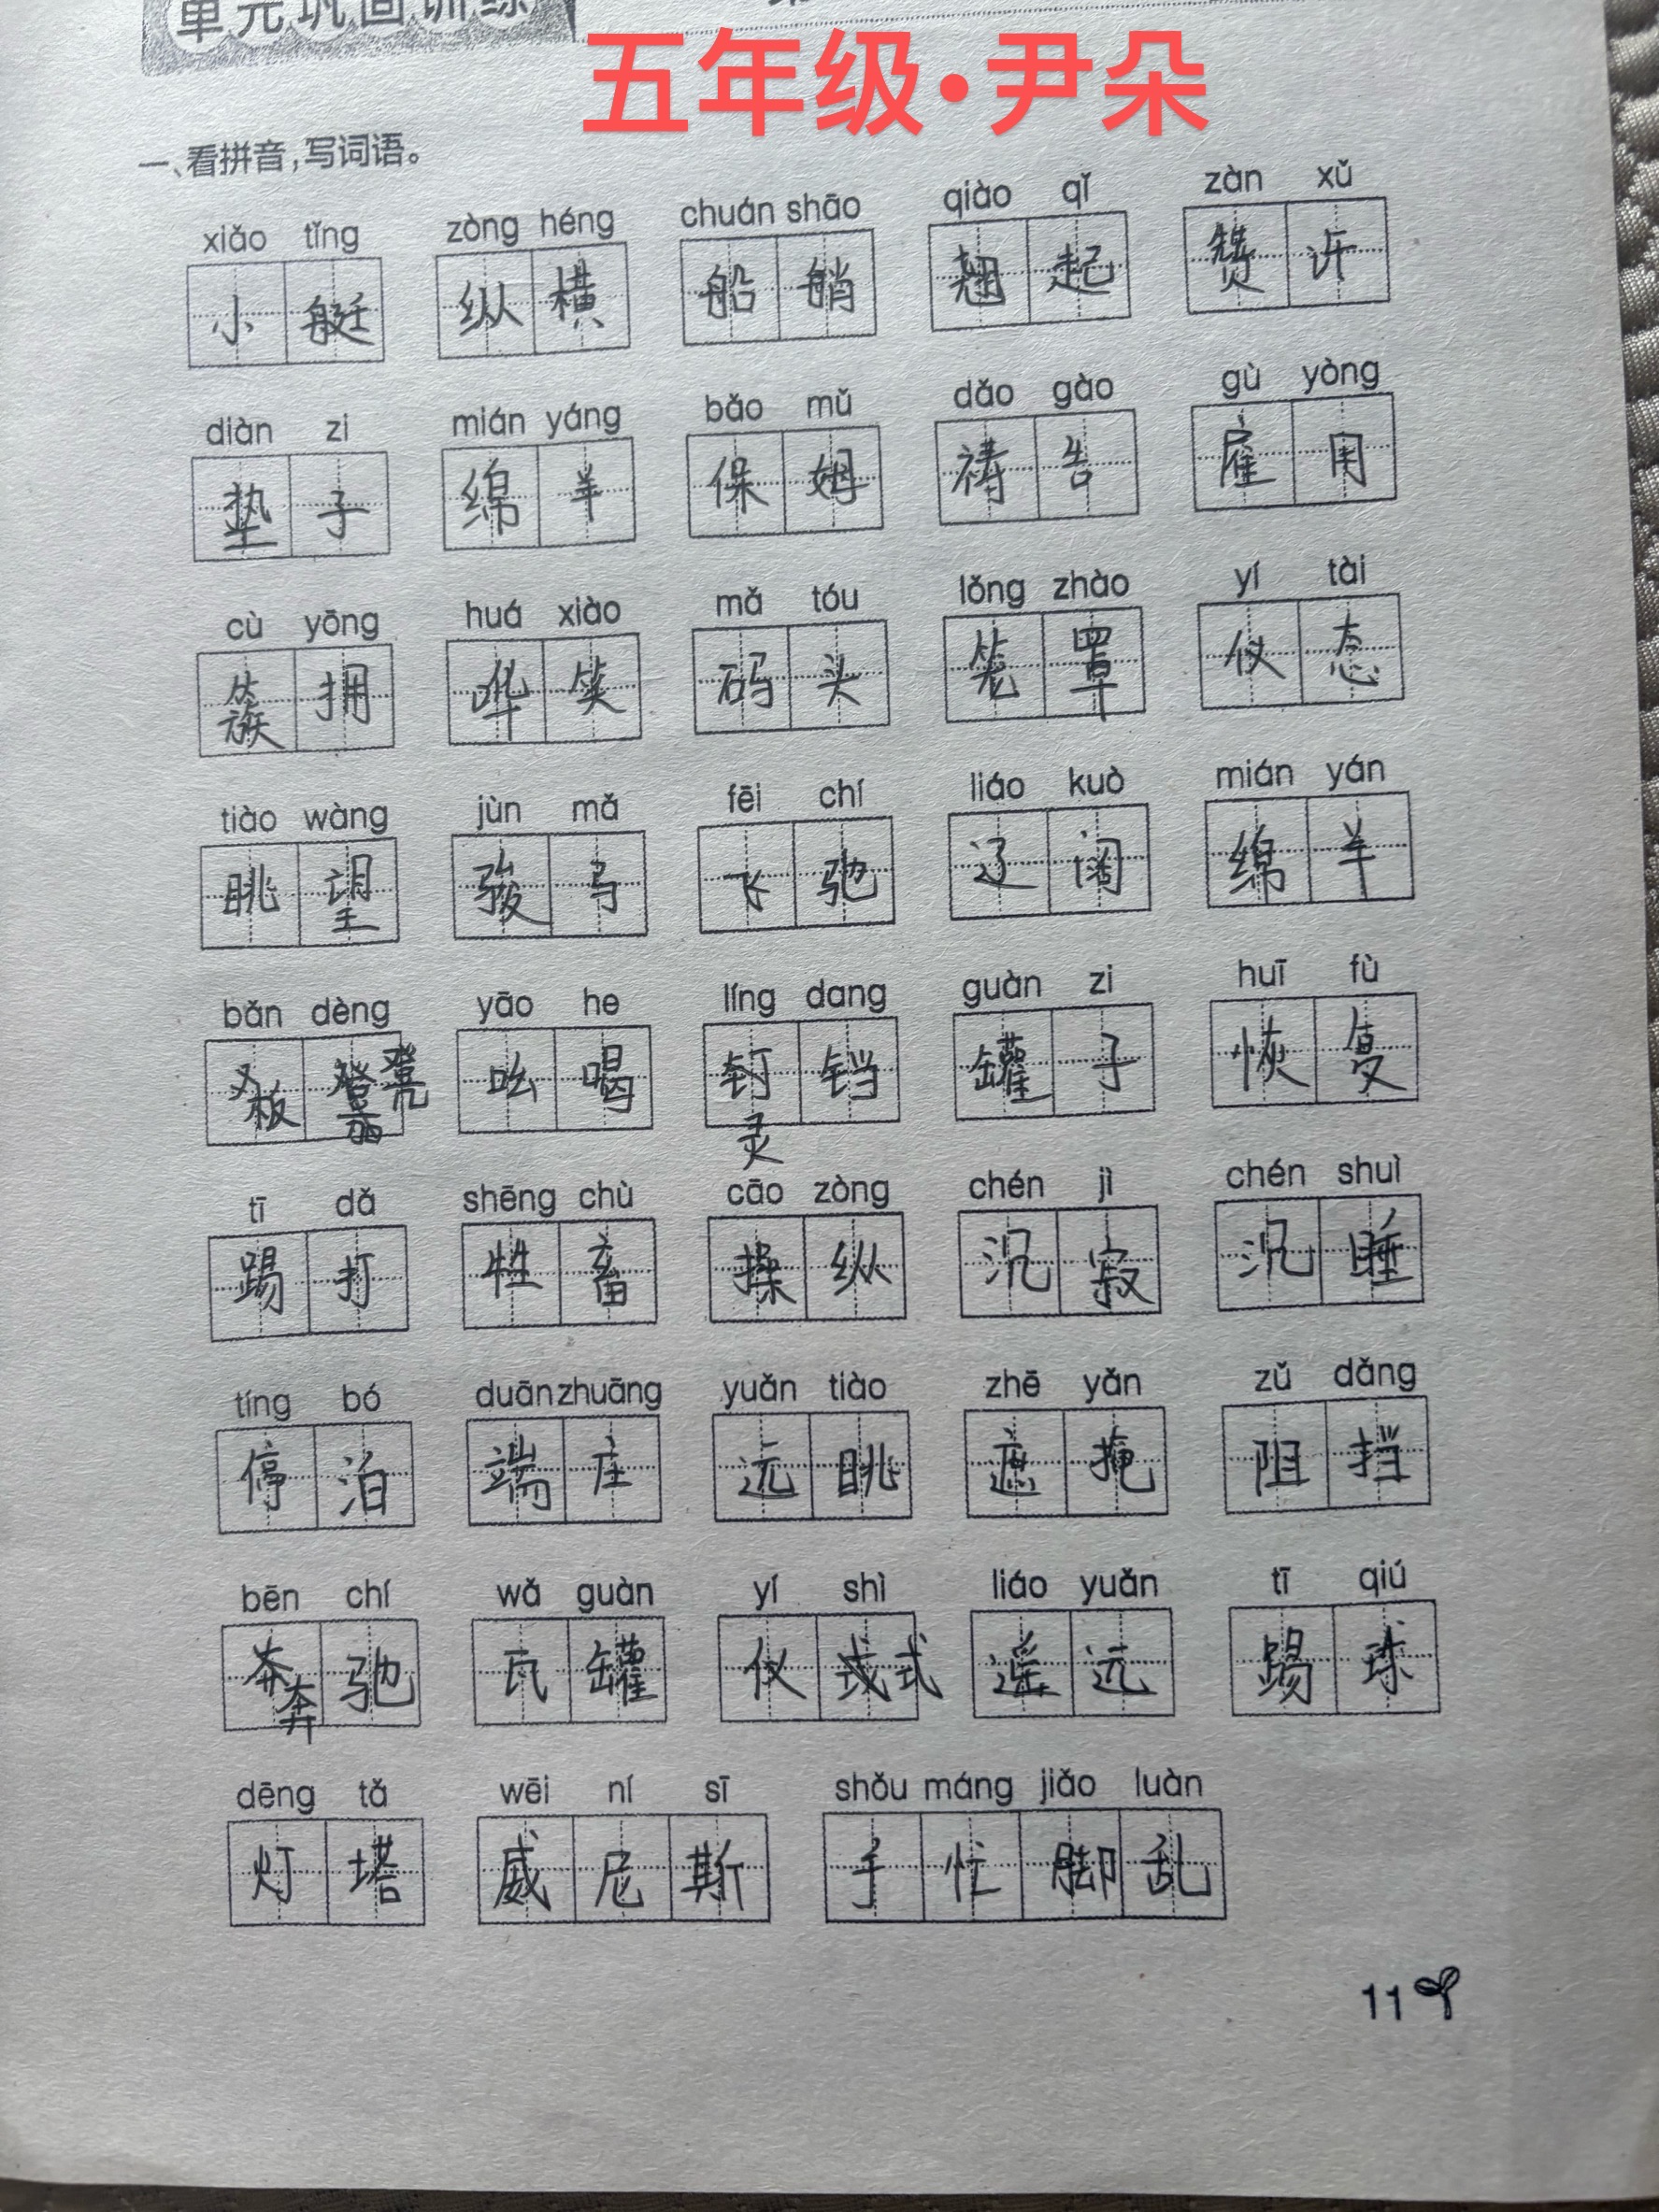 单元巩固训练
五年级·尹朵
一、看拼音,写词语。
xiǎo tǐng zòng héng chuán shāo qiào qǐ zàn xǔ
小艇 纵横 船艄 翘起 赞许
diàn zi mián yáng bǎo mǔ dǎo gào gù yòng
垫子 绵羊 保姆 祷告 雇用
cù yōng huá xiào mǎ tóu lǒng zhào yí tài
簇拥 哗笑 码头 笼罩 仪态
tiào wàng jùn mǎ fēi chí liáo kuò mián yán
眺望 骏马 飞驰 辽阔 绵羊
bǎn dèng yāo he líng dang guàn zi huī fù
板凳 吆喝 钉铛 罐子 恢复
灵
tī dǎ shēng chù cāo zòng chén jì chén shuì
踢打 牲畜 操纵 沉寂 沉睡
tíng bó duān zhuāng yuǎn tiào zhē yǎn zǔ dǎng
停泊 端庄 远眺 遮掩 阻挡
bēn chí wǎ guàn yí shì liáo yuǎn tī qiú
奔驰 瓦罐 仪式 遥远 踢球
dēng tǎ wēi ní sī shǒu máng jiǎo luàn
灯塔 威尼斯 手忙脚乱
11